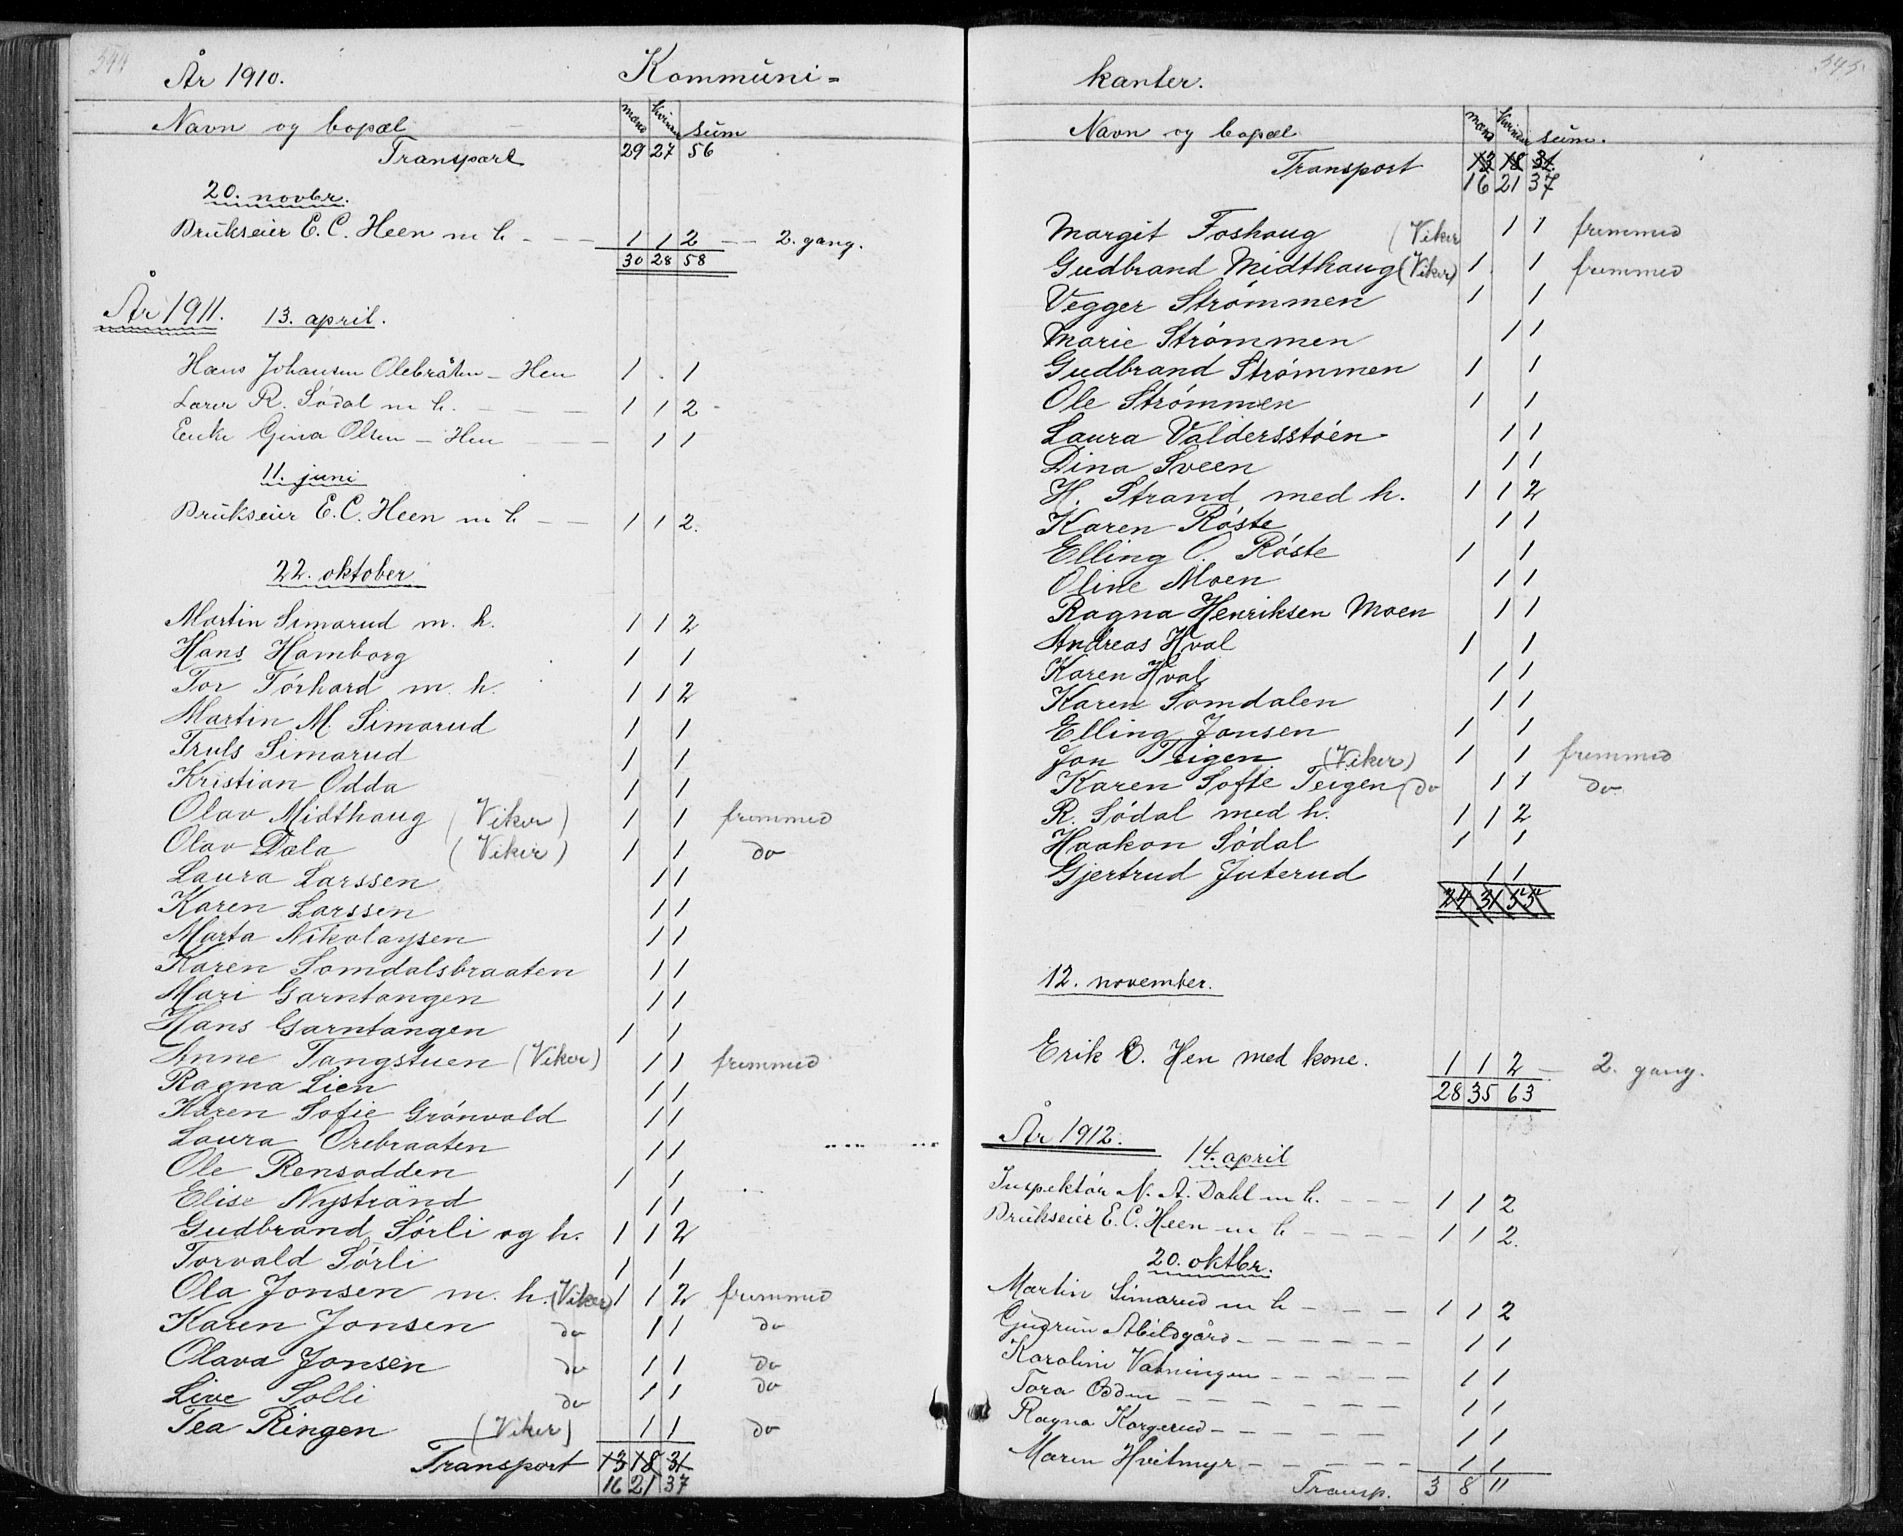 544
År 1910. Kommuni=
Navn og bopæl mænd kvinder sum
Transport 29 27 56
20. novbr.
Brukseier E. C. Heen m h. - - - 1 1 2 - - 2. gang.
30 28 58
År 1911. 13. april.
Hans Johansen Olebråten - Hen 1 . 1
Lærer R. Södal m h. - - - 1 1 2 -
Enke Gina Olsen - Hen - - - 1 1
11. juni
Brukseier E. C. Heen m h - - 1 1 2.
22. oktober
Martin Simarud m. h. 1 1 2
Hans Hamborg 1 1
Tor Törhard m. h. 1 1 2
Martin M. Simarud 1 1
Truls Simarud 1 1
Kristian Odda 1 1
Olav Midthaug (Viker) 1 1 fremmed
Olav Dæla (Viker) 1 1 do
Laura Larssen 1 1
Karen Larssen 1 1
Marta Nikolaysen 1 1
Karen Somdalsbraaten 1 1
Mari Garntangen 1 1
Hans Garntangen 1 1
Anne Tangstuen (Viker) 1 1 fremmed
Ragna Lien 1 1
Karen Sofie Grönvold 1 1
Laura Orebraaten 1 1
Ole Rensodden 1 1
Elise Nystrand 1 1
Gudbrand Sörli og h. 1 1 2
Torvald Sörli 1 1
Ola Jonsen m. h. (Viker) 1 1 2 fremmed
Karen Jonsen do 1 1 do
Olava Jonsen do 1 1 do
Live Solli do 1 1 do
Tea Ringen (Viker) 1 1 do
Transport 13 18 31
16 21 37
545.
kanter.
Navn og bopæl mænd kvinder sum.
Transport 13 18 31.
16 21 37
Margit Foshaug (Viker 1 1 fremmed
Gudbrand Midthaug (Viker) 1 1 fremmed
Vegger Strömmen 1 1
Marie Strömmen 1 1
Gudbrand Strömmen 1 1
Ole Strömmen 1 1
Laura Valdersstöen 1 1
Dina Sveen 1 1
H. Strand med h. 1 1 2
Karen Röste 1 1
Elling O. Röste 1 1
Oline Moen 1 1
Ragna Henriksen Moen 1 1
Andreas Hval 1 1
Karen Hval 1 1
Karen Somdalen 1 1
Elling Jonsen 1 1
Jon Teigen (Viker) 1 1 fremmed
Karen Sofie Teigen (do 1 1 do
R. Södal med h. 1 1 2
Haakon Södal 1 1
Gjertrud Juterud 1 1
24 31 55
12. november.
Erik O. Hen med kone. 1 1 2 - 2. gang.
28 35 63
År 1912. 14. april
Inspektör N. A. Dahl m h. - - - 1 1 2
Brukseier E. C. Heen m h - - - - 1 1 2.
20. oktbr.
Martin Simarud m h - - - 1 1 2
Gudrun Abildgård - - - - - - 1 1
Karoline Vatningen - - - - - 1 1
Tora Odden - - - - - - 1 1
Ragna Korgerud - - - - - - 1 1
Maren Hvitmyr - - - - - - 1 1
Transp. 3 8 11